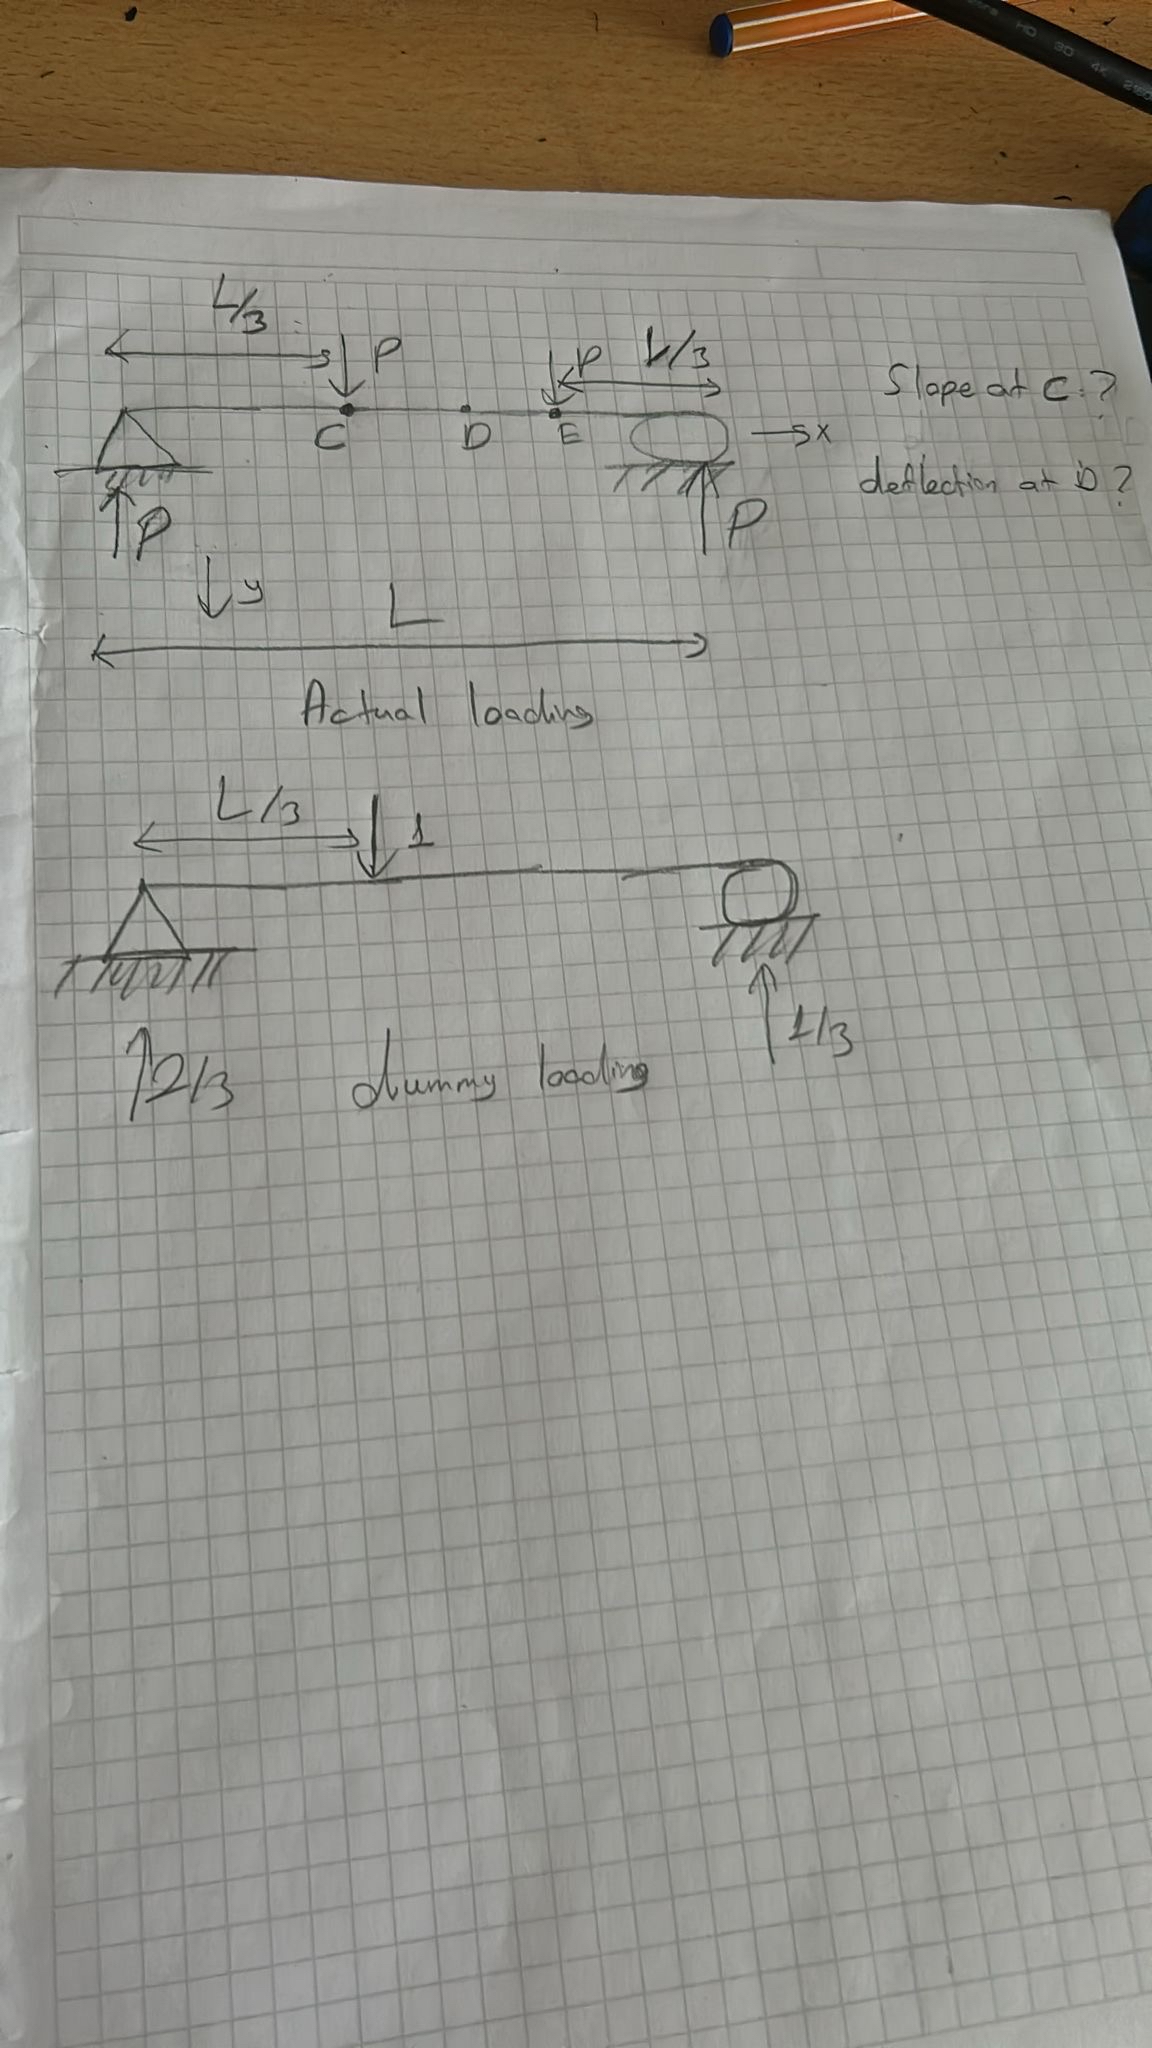 L/3
P
P
L/3
Slope at C?
C
D
E
→x
deflection at D?
P
P
y
L
Actual loading
L/3
1
1/3
2/3
dummy loading
HD 3D 4K